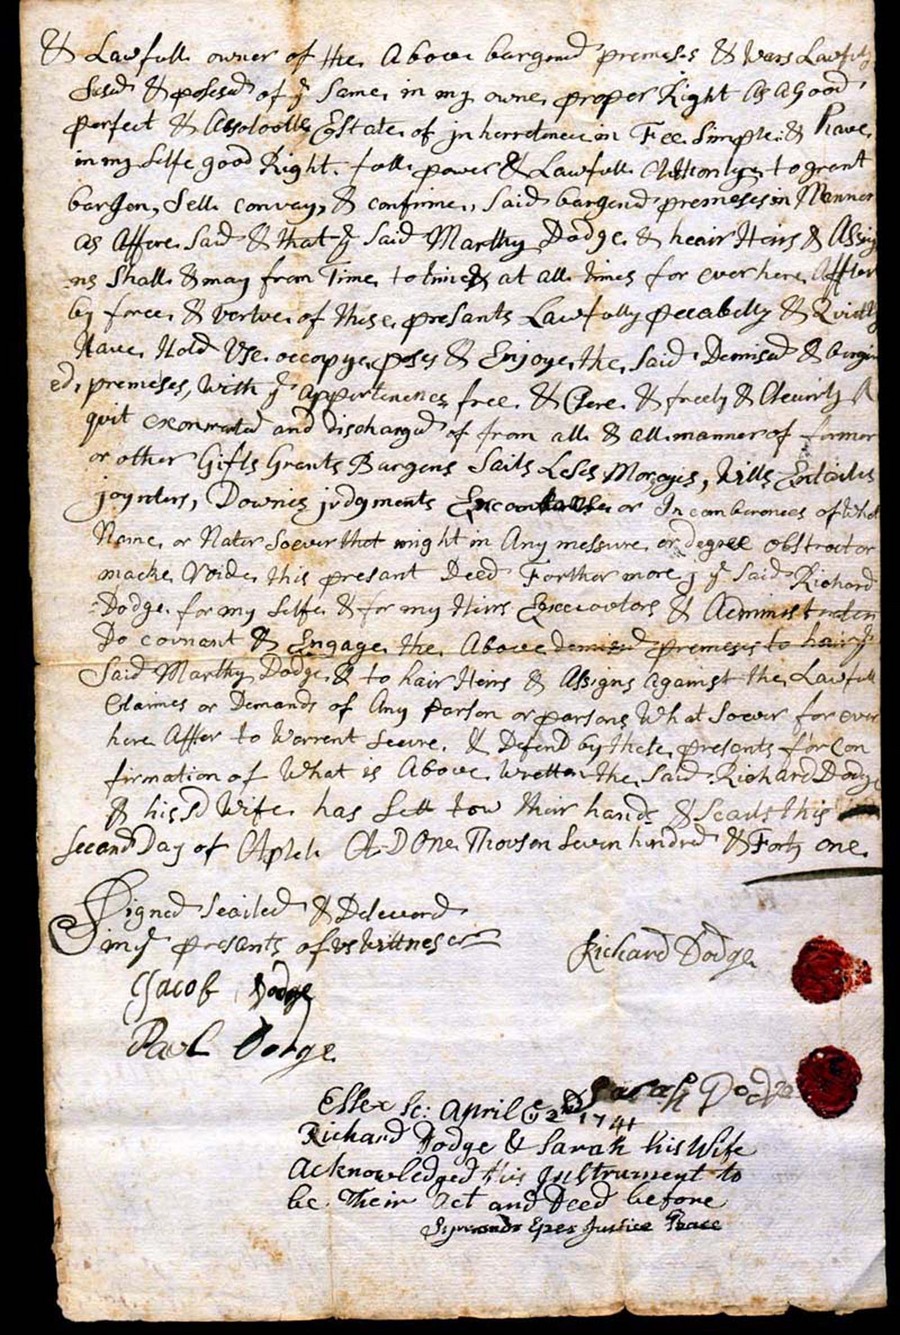 & Lawfull owner of the Above bargend premeses & was Lawfully
Sesed & posesed of ye Same in my owne proper Right As A Good
perfect & Absolootte Estate of in herretance in Fee Simple & Have
in my Selfe good Right full power & Lawfull Athorryty to grant
bargen, Sell convay, & confirme, Said bargend premeses in Manner
as Affore Said & that ye Said Marthy Dodge & heair Heirs & Assig
ns Shall & may from Time to time & at all times for ever here After
by force & vertue of these presants Lawfully pecabelly & Quiettly
Have Hold Use occopye posses & Enjoye the Said Demised & bargin
ed premeses, with ye Appertinences free & Clere & freely & Cleurly A
quit exonrated and discharged of from all & all manner of former
or other Gifts Grants Bargens Sails Leses Morgages, Wills Entailes
joynters, Dowries judgments or Incomberances of What
Name or Nater Soever that might in Any messure or degree obstroct or
macke Voide this present Deed Forther more j ye Said Richard
Dodge for my Selfe & for my Heirs Execuotors &
Do covnant & Engage the Above demised premeses to hair ye
Said Marthy Dodge & to hair Heirs & Assigns Against the Lawfull
Claimes or Demands of Any person or parsons What Soever for ever
here After to Worrent Secure & Defend by these presents for Con
firmation of What is Above Wretten the Said Richard Dodge
& his sd Wife has Sett tow their hands & Seails this
Second Day of Aprel AD One Thouson Seven hundred & Forty one
Signed Seailed & Deleuerd
in ye presents of us wittneses
Richard Dodge
Jacob Dodge
Paul Dodge
Sarah Dodge
Essex Sc: April ye 2d 1741
Richard Dodge & Sarah his Wife
Acknowledged this Instrument to
be Their Act and Deed before
Symonds Epes Justice Peace